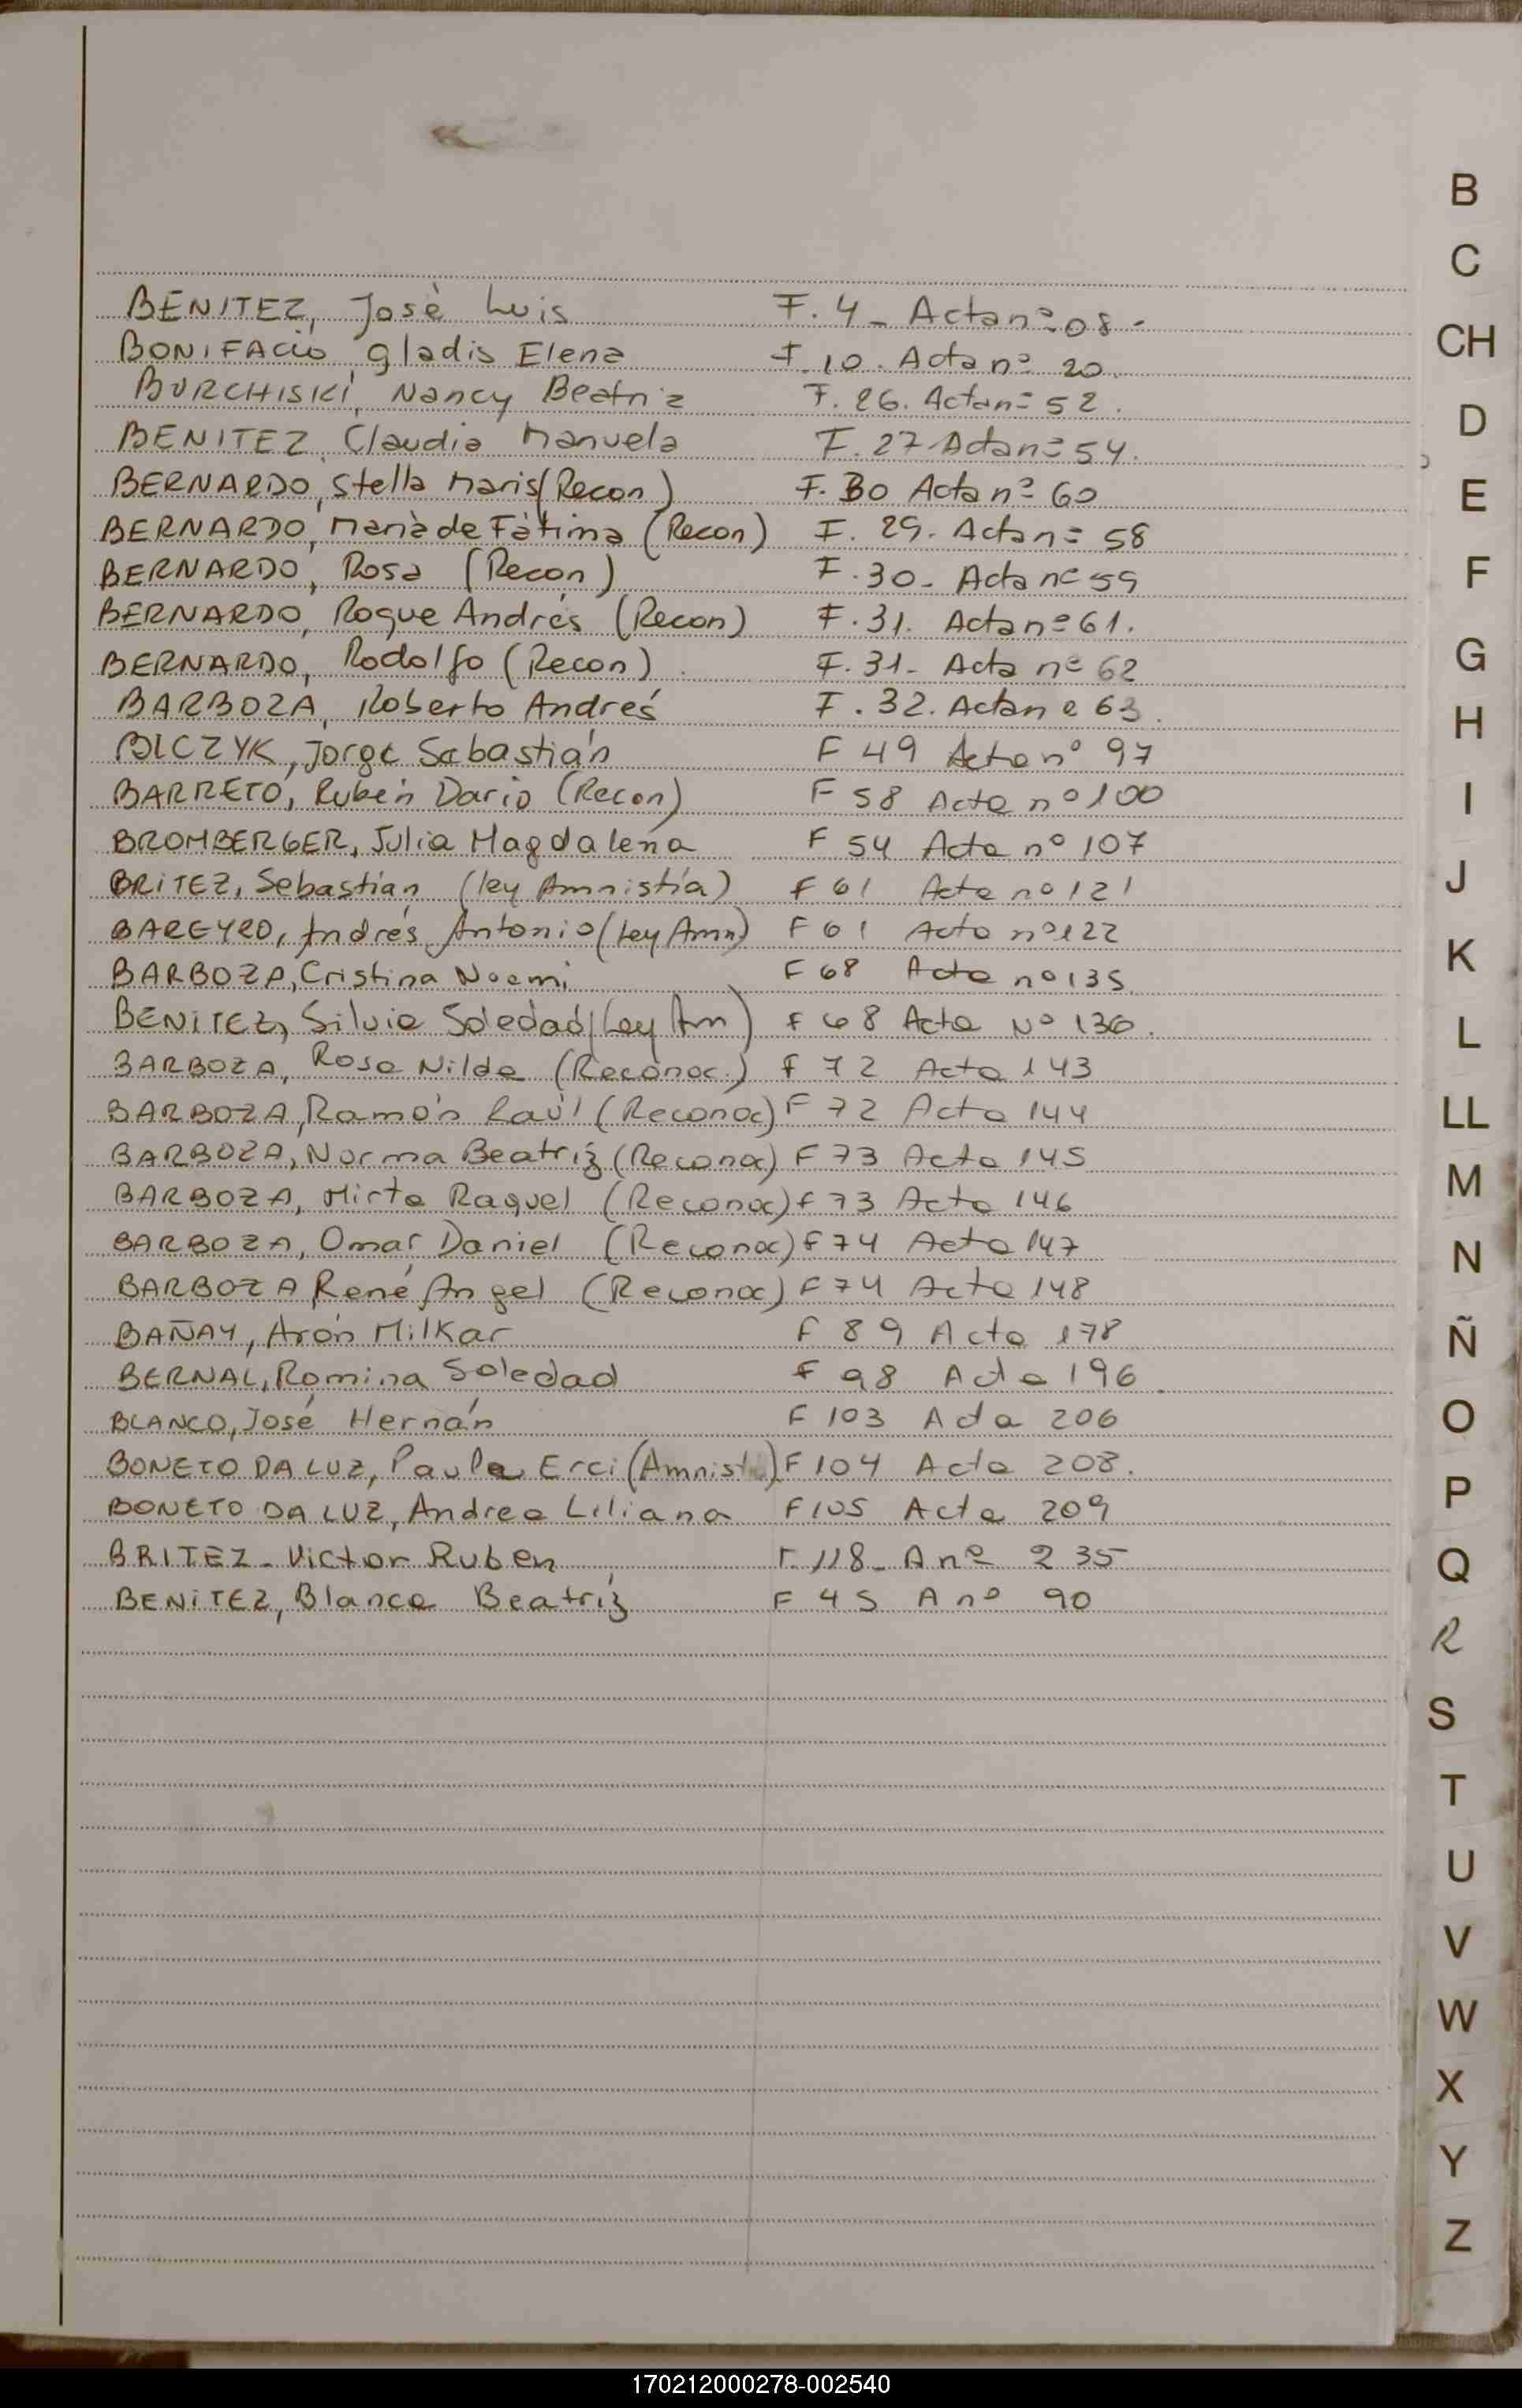 BENITEZ, José Luis F. 4 - Acta nº 08 -
BONIFACIO Gladis Elena F. 10. Acta nº 20.
BURCHISKI, Nancy Beatriz F. 26. Acta nº 52.
BENITEZ, Claudia Manuela F. 27 Acta nº 54.
BERNARDO, Stella Maris (Recon) F. 30 Acta nº 60
BERNARDO, Maria de Fátima (Recon) F. 29. Acta nº 58
BERNARDO, Rosa (Recon) F. 30 - Acta nº 59
BERNARDO, Roque Andrés (Recon) F. 31. Acta nº 61.
BERNARDO, Rodolfo (Recon). F. 31 - Acta nº 62
BARBOZA, Roberto Andrés F. 32. Acta nº 63.
Jorge Sebastián F 49 Acta nº 97
BARRETO, Rubén Dario (Recon) F 58 Acta nº 100
BROMBERGER, Julia Magdalena F 54 Acta nº 107
BRITEZ, Sebastián (ley Amnistía) F 61 Acta nº 121
BAREYRO, Andrés Antonio (Ley Amn) F 61 Acta nº 122
BARBOZA, Cristina Noemi F 68 Acta nº 135.
BENITEZ, Silvia Soledad (Ley Am) F 68 Acta Nº 136.
BARBOZA, Rosa Nilda (Reconoc.) F 72 Acta 143
BARBOZA, Ramón Raúl (Reconoc) F 72 Acta 144
BARBOZA, Norma Beatriz (Reconoc) F 73 Acta 145
BARBOZA, Mirta Raquel (Reconoc) F 73 Acta 146
BARBOZA, Omar Daniel (Reconoc) F 74 Acta 147
BARBOZA, René Angel (Reconoc) F 74 Acta 148
BAÑAY, Arón Milkar F 89 Acta 178
BERNAL, Romina Soledad F 98 Acta 196.
BLANCO, José Hernán F 103 Acta 206
BONETO DA LUZ, Paula Erci (Amnist.) F 104 Acta 208.
BONETO DA LUZ, Andrea Liliana F 105 Acta 209
BRITEZ - Victor Ruben F. 118 - A nº 235
BENITEZ, Blanca Beatriz F 45 A nº 90
B
C
CH
D
E
F
G
H
I
J
K
L
LL
M
N
Ñ
O
P
Q
R
S
T
U
V
W
X
Y
Z
170212000278-002540